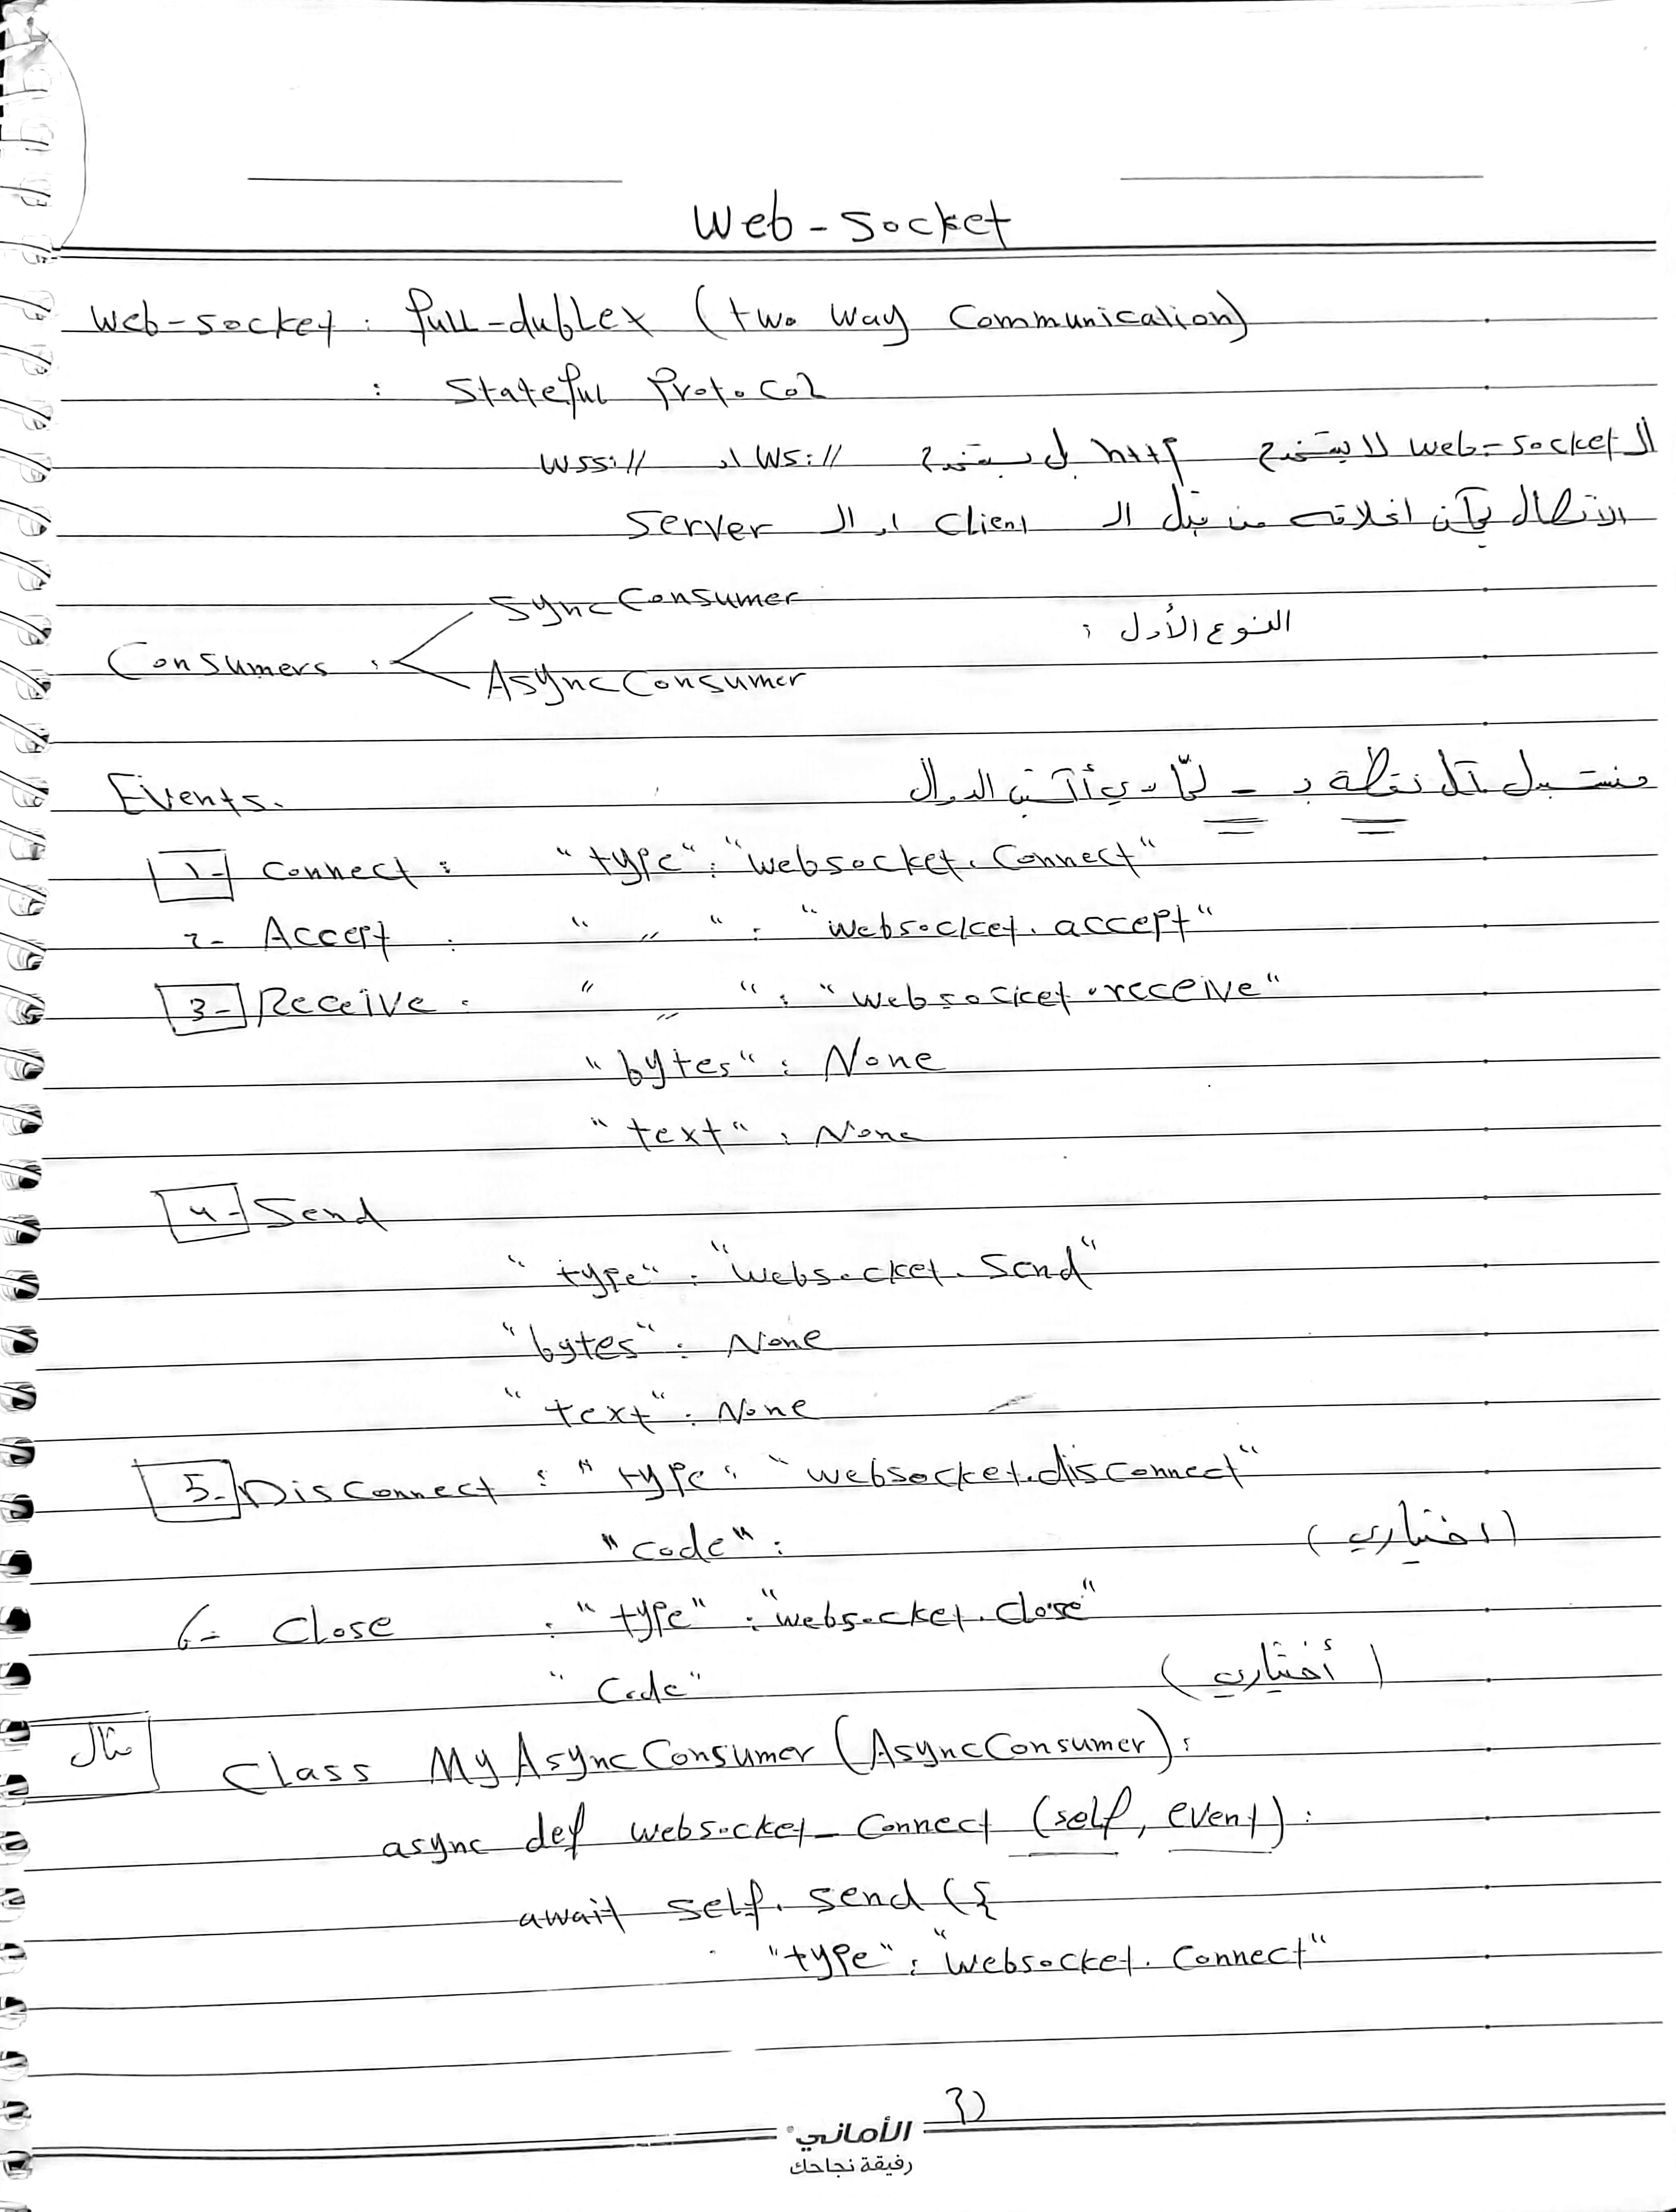 Web-Socket
Web-socket : full-dublex (two way Communication)
: Stateful Protocol
الـ web-socket لا يستخدم http بل يستخدم ws:// او wss://
الاتصال يمكن اغلاقه من قبل الـ Client او الـ Server
النوع الأول :
SyncConsumer
Consumers :
AsyncConsumer
Events. نقطة بـ _ لمّا أكتب الدوال
1- Connect : "type" : "websocket.Connect"
2- Accept : " " " : "websocket.accept"
3- Receive : " " " : "websocket.receive"
"bytes" : None
"text" : None
4- Send
"type" : "websocket.Send"
"bytes" : None
"text" : None
5- DisConnect : "type : "websocket.disconnect"
"code" : (اختياري)
6- Close : "type" : "websocket.close"
"Code" (أختياري)
مثال
Class MyAsyncConsumer (AsyncConsumer) :
async def websocket_Connect (self, event) :
await self.send ({
"type" : "websocket.Connect"
الأماني
رفيقة نجاحك